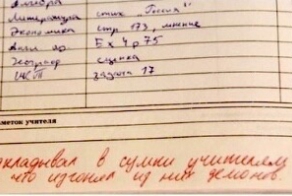 Алгебра
Литература стих "Россия"
Экономика стр 173, мнение
Англ. яз. Б х 4 р 75
сценка
задача 17
меток учителя
кладывал в сумки учителям
что изгонял из них демонов.